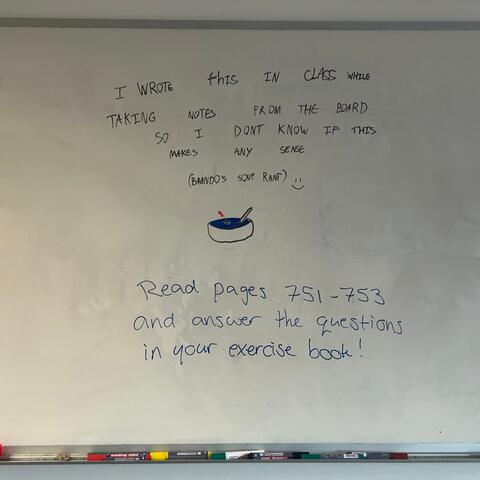 I WROTE this IN CLASS WHILE
TAKING NOTES FROM THE BOARD
SO I DONT KNOW IF THIS
MAKES ANY SENSE
(BRANDO'S SOUP RANT) :)
Read pages 751-753
and answer the questions
in your exercise book!